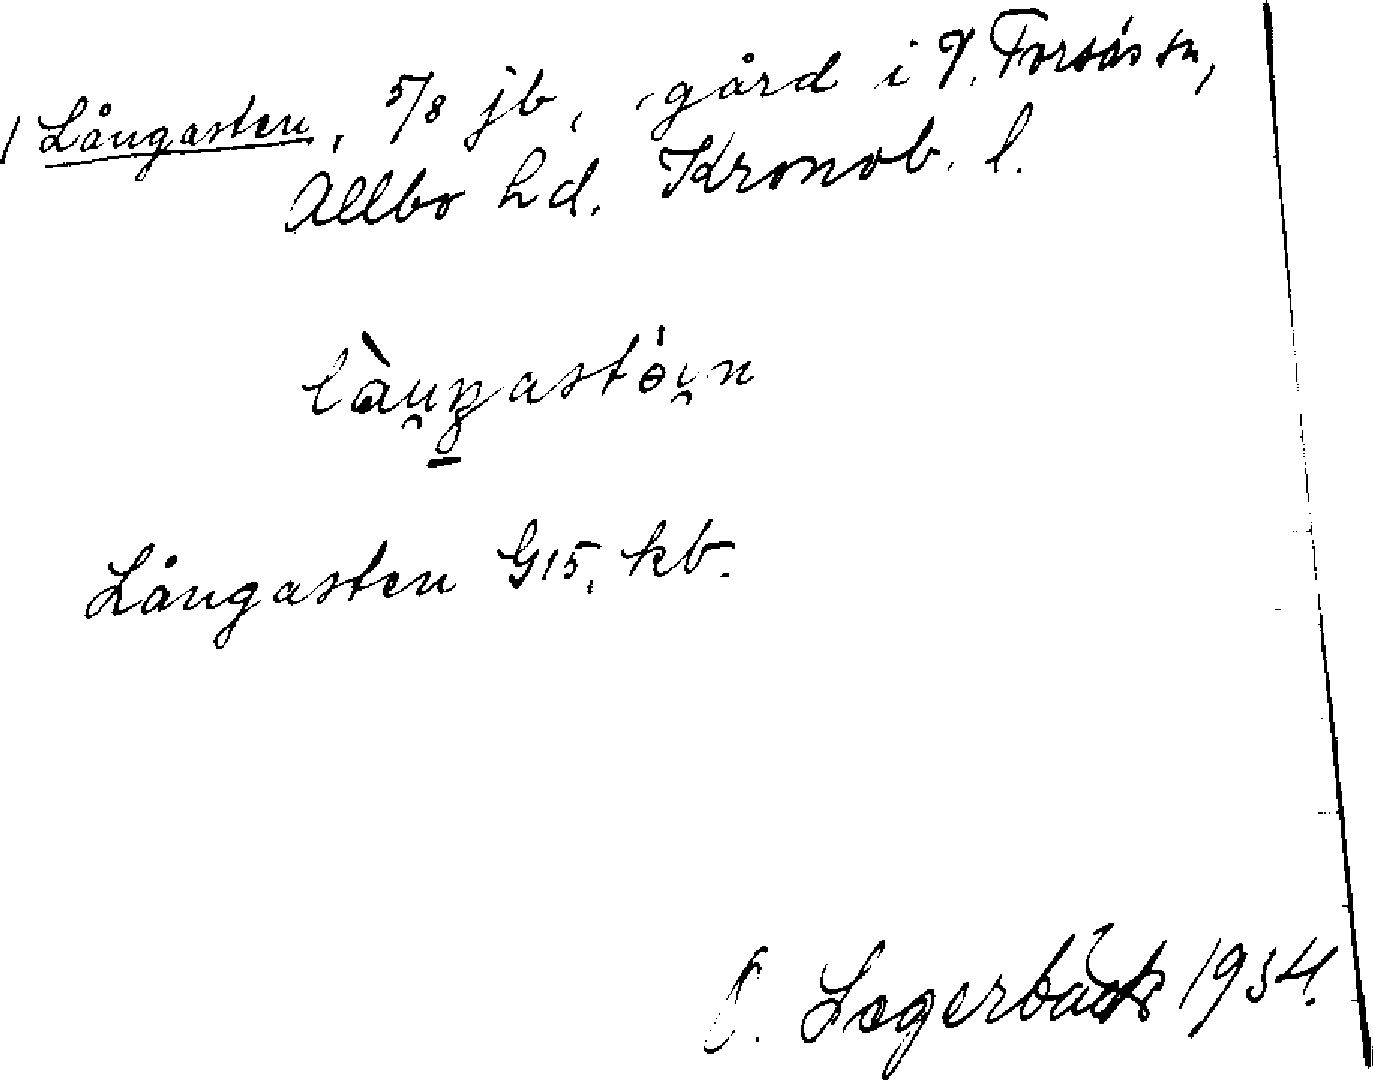 Långasten, 5/8 jb, gård i V. Torsås sn,
Allbo hd. Kronob. l.
Långasten G15, kb.
Lagerbäck 1934.